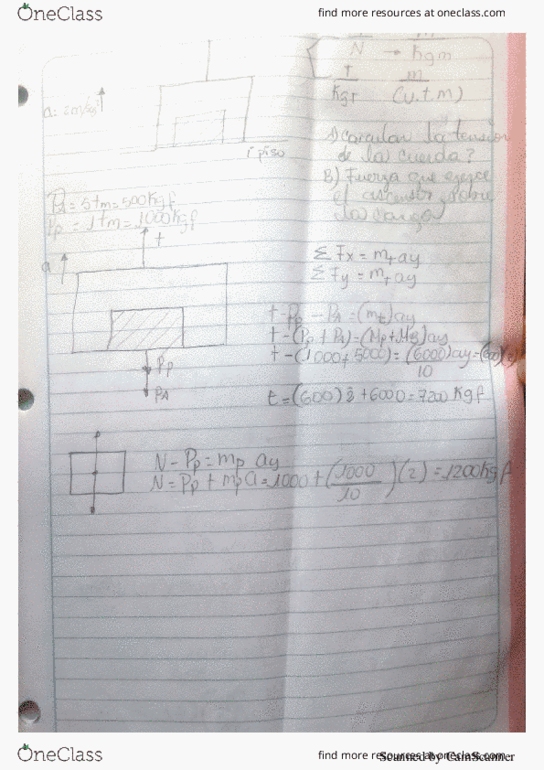 OneClass
find more resources at oneclass.com
N → Kgm
T m
Kgf (u.t.m)
1º piso
de la cuerda?
B) Fuerza que ejerce
el ascensor sobre
la carga
= 5tm = 500Kgf
Pp = 1tm = 1000Kgf
t
a
Σ Fx = m+ ay
Σ Fy = m+ ay
t - Pp - PA = (mt) ay
t - (1000 + 5000) = (6000) ay = (600)(2)
10
t = (600) 2 + 6000 = 7200 Kgf
Pp
PA
N - Pp = mp ay
N = Pp + mp a = 1000 + (1000)(2) = 1200kgf
10
OneClass
find more resources at oneclass.com
Scanned by CamScanner